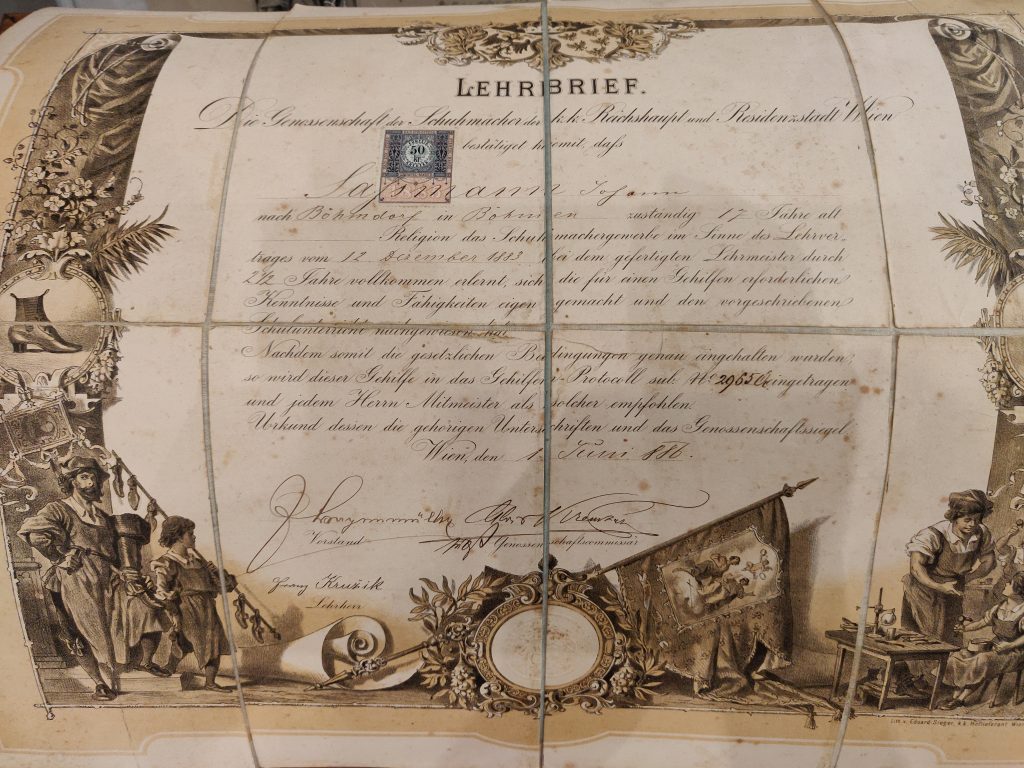 LEHRBRIEF.
Die Genossenschaft der Schuhmacher der k.k. Reichshaupt und Residenzstadt Wien
bestätiget hiemit, daß
50
Johann
nach Böhmdorf in Böhmen zuständig 17 Jahre alt
Religion das Schuhmachergewerbe im Sinne des Lehrver-
trages vom 12 Dezember 1883 bei dem gefertigten Lehrmeister durch
2½ Jahre vollkommen erlernt, sich die für einen Gehilfen erforderlichen
Kenntnisse und Fähigkeiten eigen gemacht und den vorgeschriebenen
Schulunterricht nachgewiesen hat.
Nachdem somit die gesetzlichen Bedingungen genau eingehalten wurden,
so wird dieser Gehilfe in das Gehilfen-Protocoll sub. No eingetragen
und jedem Herrn Mitmeister als solcher empfohlen.
Urkund dessen die gehörigen Unterschriften und das Genossenschaftssiegel.
Wien, den 1. Juni 886.
Vorstand Genossenschaftscommissär
Franz Kružik
Lehrherr
Lith. v. Eduard Sieger, k.k. Hoflieferant Wien